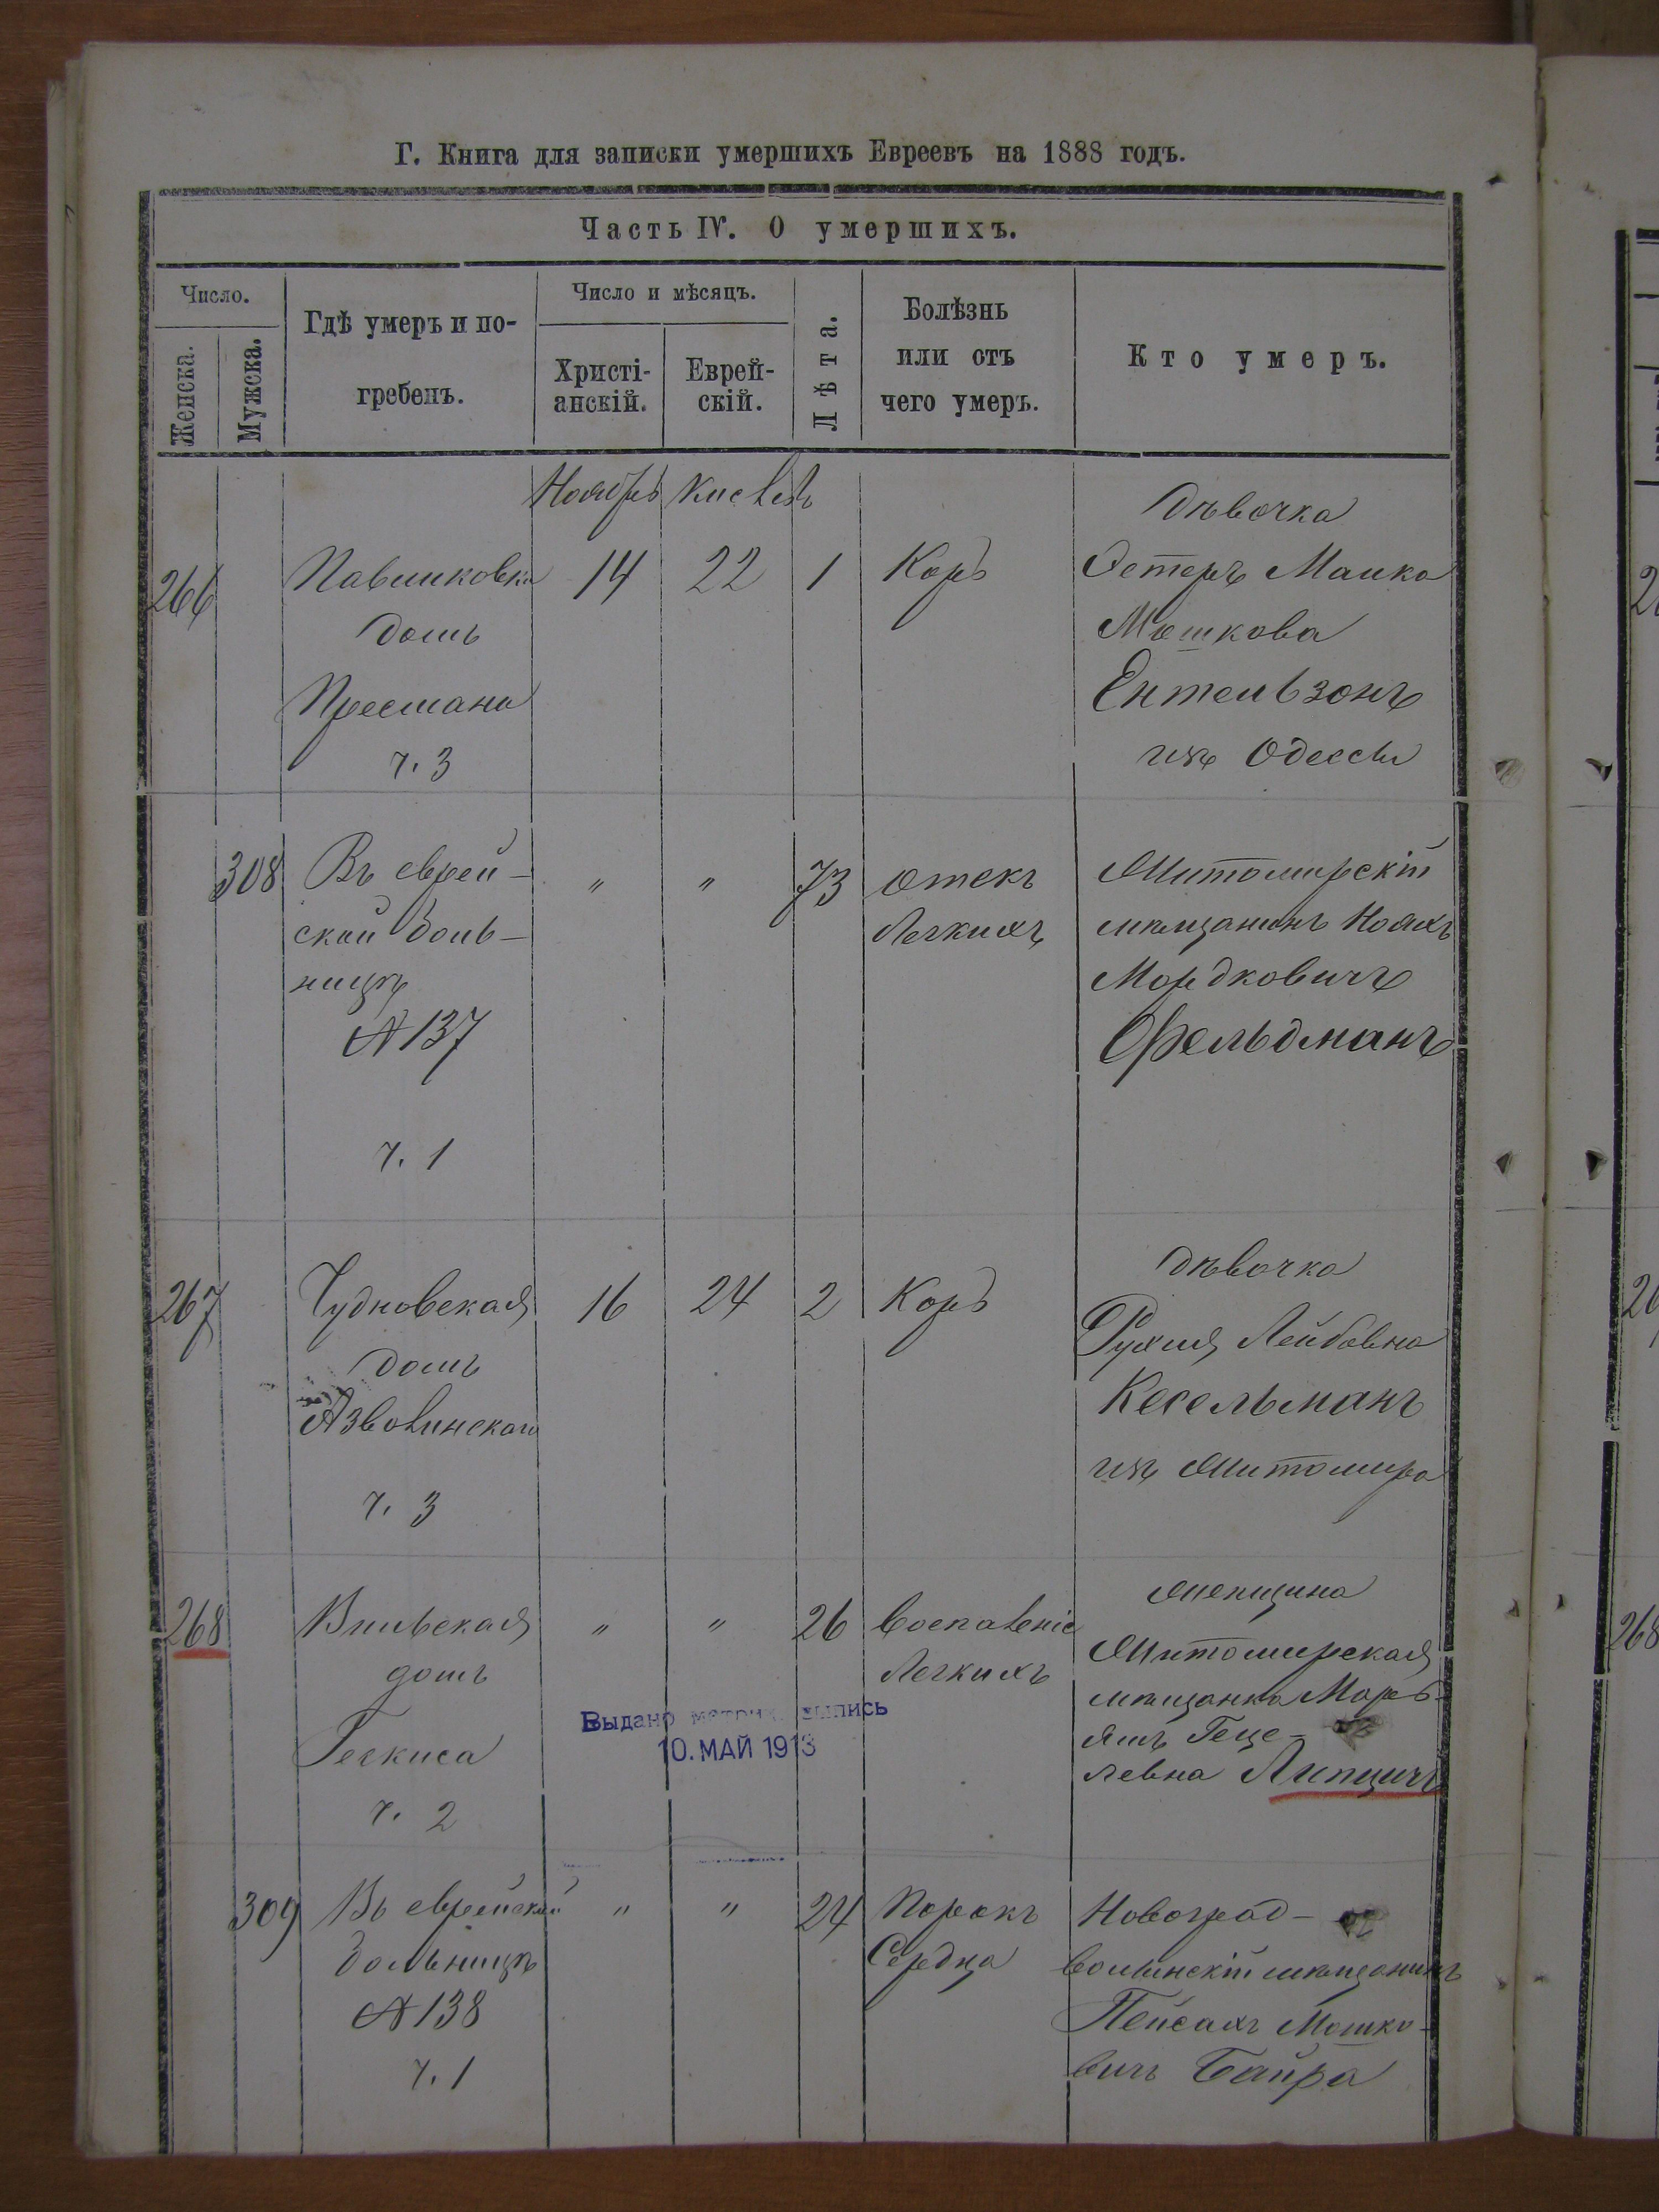 Г. Книга для записки умершихъ Евреевъ на 1888 годъ.
Часть IV. О умершихъ.
Число.
Женска.
Мужска.
Гдѣ умеръ и по-
гребенъ.
Число и мѣсяцъ.
Христі-
анскій.
Еврей-
скій.
Лѣта.
Болѣзнь
или отъ
чего умеръ.
Кто умеръ.
Ноябрь Кислевъ
266
Павликовка
домъ
ч. 3
14 22 1 Корь
Дѣвочка
Эстеръ Малка
Мошкова
Ентельзонъ
изъ Одессы
308
Въ еврей-
ской боль-
ницѣ
№ 137
ч. 1
" " 73 отекъ
Легкихъ
Житомирскій
мѣщанинъ Нояхъ
Мордковичъ
Фельдманъ
267
Чудновская
домъ
ч. 3
16 24 2 Корь
Дѣвочка
Рухля Лейбовна
Кесельманъ
изъ Житомира
268
Вильская
домъ
ч. 2
" " 26 Воспаленіе
Легкихъ
Женщина
Житомирская
мѣщанка
Геце-
левна Липщичъ
Выдано метрич. выпись
10. МАЙ 1913
309
Въ еврейской
больницѣ
№ 138
ч. 1
" " 24 Порокъ
Сердца
Новоград-
волынскій мѣщанинъ
Пейсахъ Мошко-
вичъ Байра
268